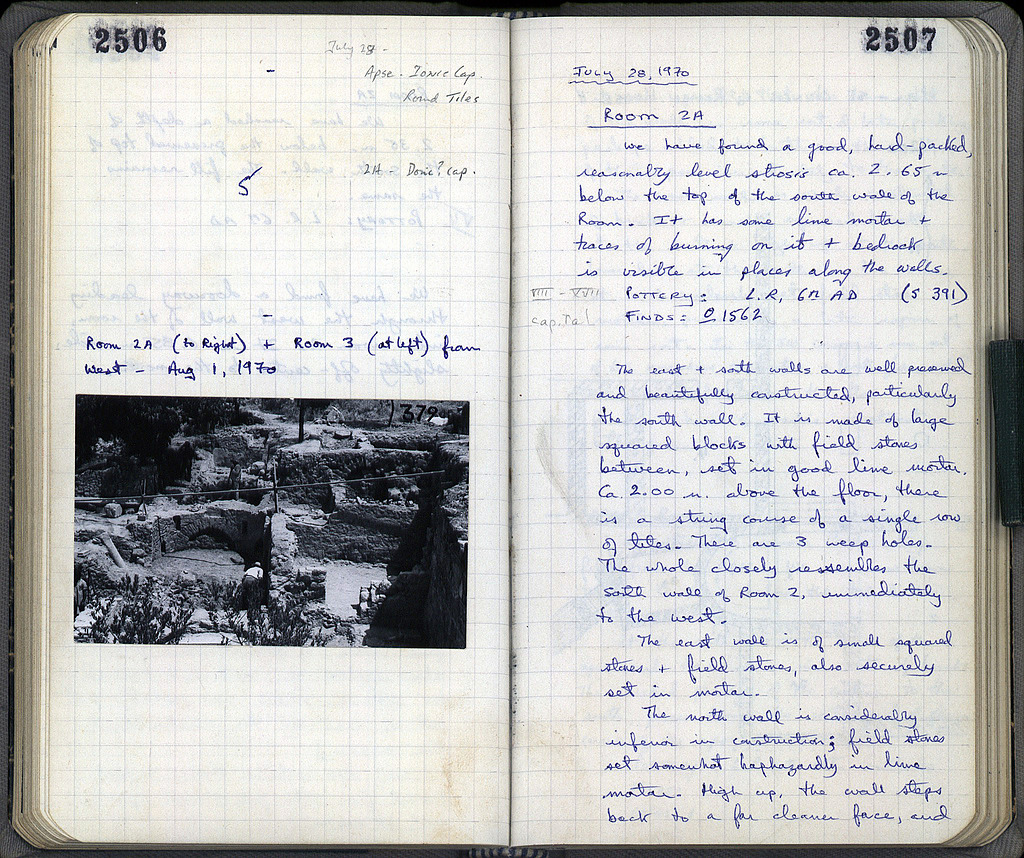 2506
July 28 -
Apse - Ionic Cap.
Round Tiles
2A - Doric? cap.
5
Room 2A (to Right) + Room 3 (at left) from
west - Aug 1, 1970
379
2507
July 28, 1970
Room 2A
We have found a good, hard-packed,
reasonably level strosis ca. 2.65 m
below the top of the south wall of the
Room. It has some lime mortar +
traces of burning on it + bedrock
is visible in places along the walls.
VIII - XVII Pottery: L.R, 6th AD (S 391)
capital Finds: O 1562
The east + south walls are well preserved
and beautifully constructed, particularly
the south wall. It is made of large
squared blocks with field stones
between, set in good lime mortar.
Ca. 2.00 m. above the floor, there
is a string course of a single row
of tiles. There are 3 weep holes.
The whole closely resembles the
south wall of Room 2, immediately
to the west.
The east wall is of small squared
stones + field stones, also securely
set in mortar.
The north wall is considerably
inferior in construction; field stones
set somewhat haphazardly in lime
mortar. High up, the wall steps
back to a far cleaner face, and